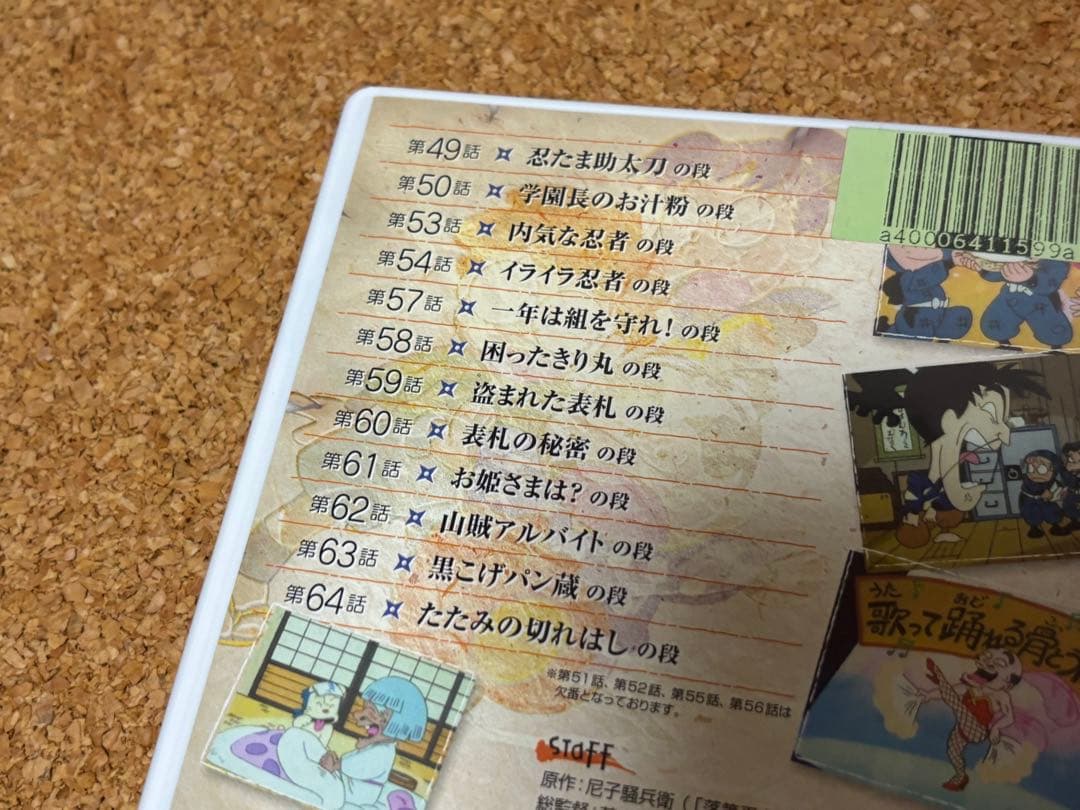 第49話 忍たま助太刀 の段
第50話 学園長のお汁粉 の段
第53話 内気な忍者 の段
第54話 イライラ忍者 の段
第57話 一年は組を守れ! の段
第58話 困ったきり丸 の段
第59話 盗まれた表札 の段
第60話 表札の秘密 の段
第61話 お姫さまは? の段
第62話 山賊アルバイト の段
第63話 黒こげパン蔵 の段
第64話 たたみの切れはし の段
※第51話、第52話、第55話、第56話は
欠番となっております。
STAFF
原作:尼子騒兵衛
総監督:
a400064111599a
うた おど
歌って踊れる骨とう